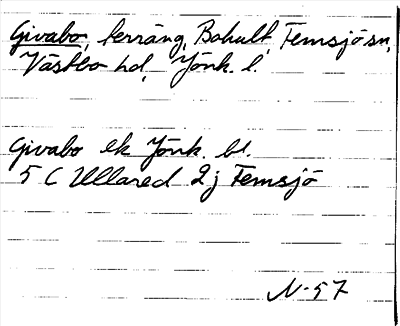 Givabo, terräng, Bohult, Femsjö sn,
Västbo hd, Jönk. l.
Givabo ek Jönk. bl.
5 C Ullared 2 j Femsjö
N-57